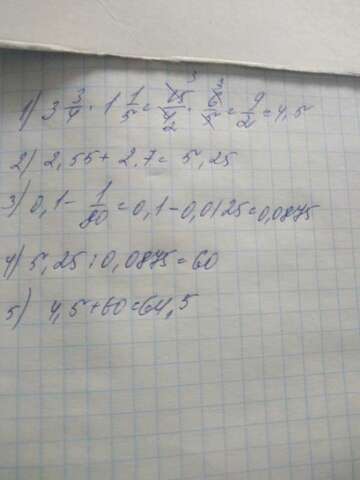 1) 3 3/4 · 1 1/5 = 15/4 · 6/5 = 9/2 = 4,5
2) 2,55 + 2,7 = 5,25
3) 0,1 - 1/80 = 0,1 - 0,0125 = 0,0875
4) 5,25 : 0,0875 = 60
5) 4,5 + 60 = 64,5